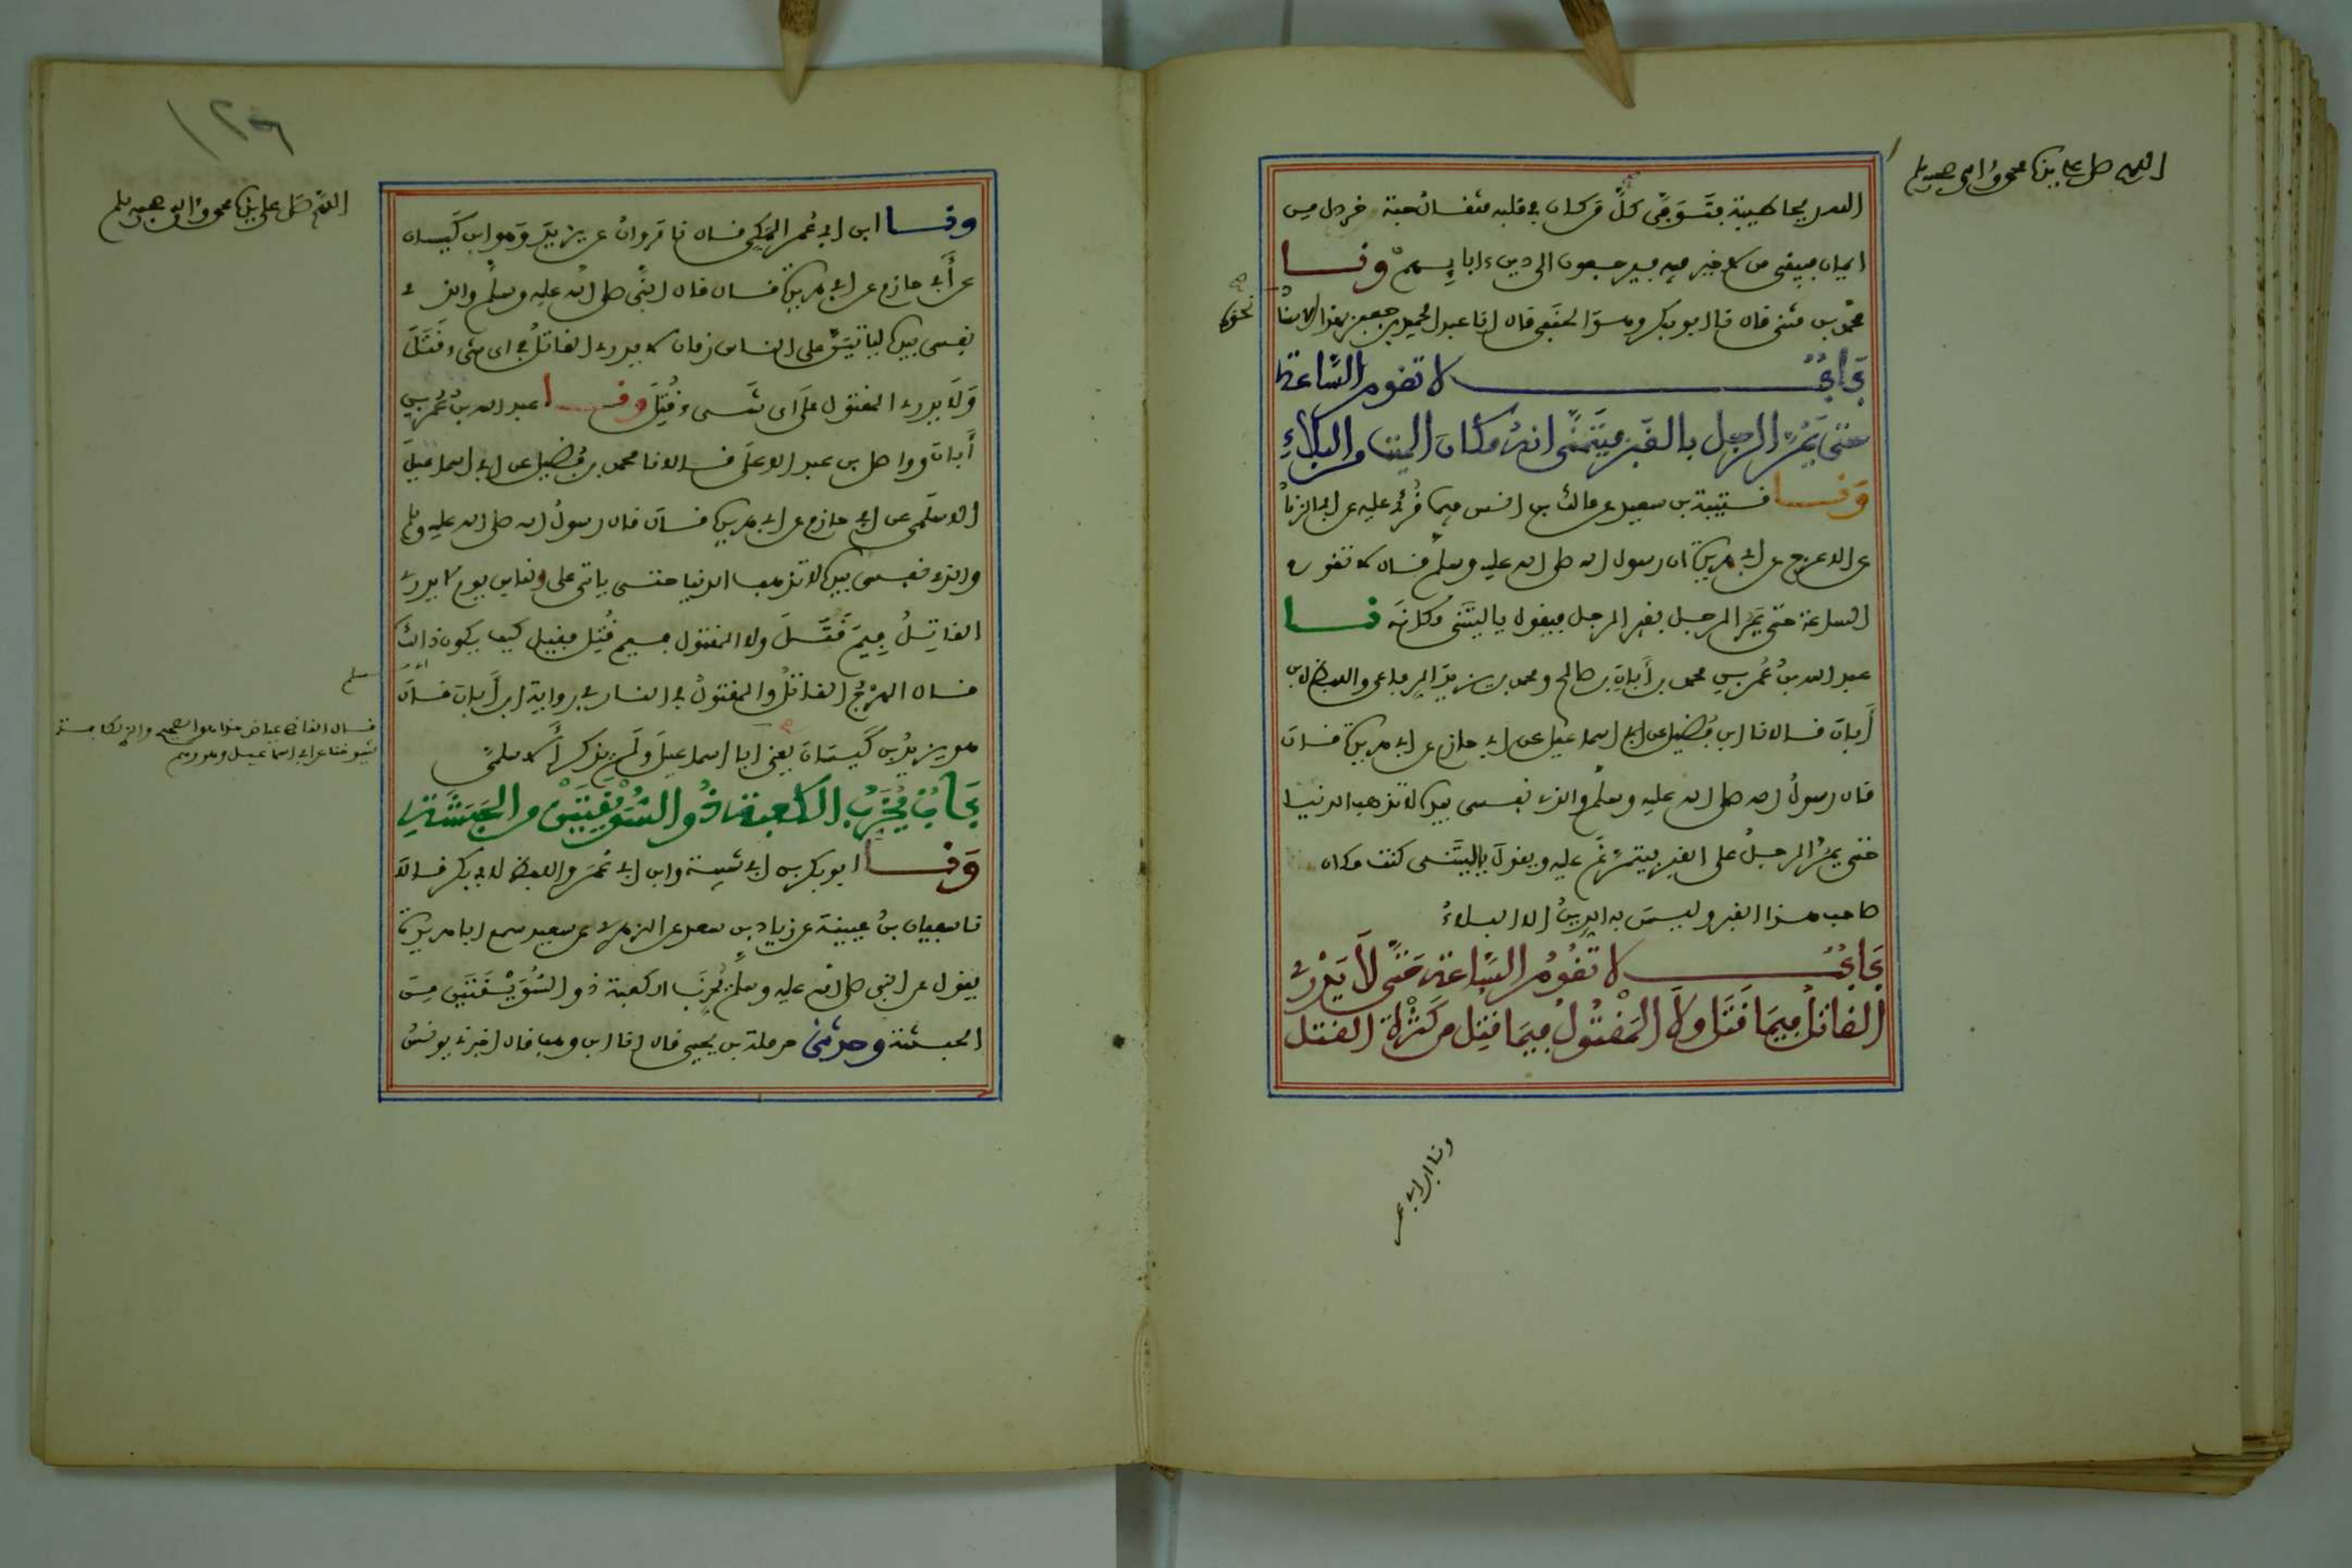 اللهم صل على سيدنا محمد وءاله وصحبه وسلم
الله ريحا طيبة فتوفى كل من كان في قلبه مثقال حبة خردل من
ايمان فيبقى من لا خير فيه فيرجعون الى دين ءابايهم ونا
محمد بن مثنى قال نا ابو بكر وهو الحنفي قال انا عبد الحميد بن جعفر بهذا الاسناد
نحوه
باب لا تقوم الساعة
حتى يمر الرجل بالقبر فيتمنى انه مكان الميت من البلاء
ونا قتيبة بن سعيد عن مالك بن انس فيما قرئ عليه عن ابي الزناد
عن الاعرج عن ابي هريرة ان رسول الله صلى الله عليه وسلم قال لا تقوم
الساعة حتى يمر الرجل بقبر الرجل فيقول يا ليتني مكانه نا
عبد الله بن عمر بن محمد بن أبان بن صالح ومحمد بن يزيد الرفاعي واللفظ لابن
أبان قالا نا ابن فضيل عن ابي اسماعيل عن ابي حازم عن ابي هريرة قال
قال رسول الله صلى الله عليه وسلم والذي نفسي بيده لا تذهب الدنيا
حتى يمر الرجل على القبر فيتمرغ عليه ويقول يا ليتني كنت مكان
صاحب هذا القبر وليس به الدين الا البلاء
باب لا تقوم الساعة حتى لا يدري
القاتل فيما قتل ولا المقتول فيما قتل من كثرة القتل
ونا ابن ابي عمر
١٢٦
اللهم صل على سيدنا محمد وءاله وصحبه وسلم
ونا ابن ابي عمر المكي قال نا مروان عن يزيد وهو ابن كيسان
عن أبي حازم عن ابي هريرة قال قال النبي صلى الله عليه وسلم والذي
نفسي بيده لياتين على الناس زمان لا يدري القاتل في اي شيء قتل
ولا يدري المقتول على اي شيء قتل ونا عبد الله بن عمر بن
أبان وواصل بن عبد الاعلى قالا نا محمد بن فضيل عن ابي اسماعيل
الاسلمي عن ابي حازم عن ابي هريرة قال قال رسول الله صلى الله عليه وسلم
والذي نفسي بيده لا تذهب الدنيا حتى ياتي على الناس يوم لا يدري
القاتل فيم قتل ولا المقتول فيم قتل فقيل كيف يكون ذالك
قال الهرج القاتل والمقتول في النار في رواية ابن أبان قال
هو يزيد بن كيسان يعني ابا اسماعيل ولم يذكر الاسلمي
قال القاضي عياض
شيوخنا عن ابي اسماعيل وهو وهم
باب يخرب الكعبة ذو السويقتين من الحبشة
ونا ابو بكر بن ابي شيبة وابن ابي عمر واللفظ لابي بكر قالا
نا سفيان بن عيينة عن زياد بن سعد عن الزهري عن سعيد سمع ابا هريرة
يقول عن النبي صلى الله عليه وسلم يخرب الكعبة ذو السويقتين من
الحبشة وحدثني حرملة بن يحيى قال انا ابن وهب قال اخبرني يونس